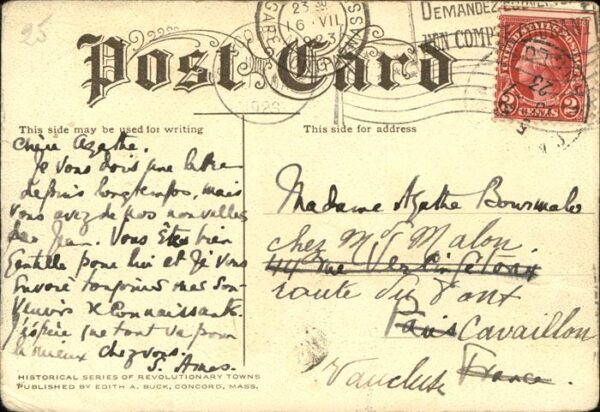 25
23 30
16 · VII
1923
DEMANDEZ
UN COMP
2 CENTS 2
Post Card
This side may be used for writing
This side for address
Chère Agathe.
Je vous dois une lettre
depuis longtemps, mais
vous avez de nos nouvelles
par Jean. Vous êtes bien
gentille pour lui et je vous
envoie toujours mes sou-
venirs
J'espère que tout va pour
le mieux chez vous.
S. Amos.
Madame Agathe Bourmalo
chez Mr Malon.
44 rue Vercingétorix
route du Pont
Paris Cavaillon
Vaucluse France
HISTORICAL SERIES OF REVOLUTIONARY TOWNS
PUBLISHED BY EDITH A. BUCK, CONCORD, MASS.